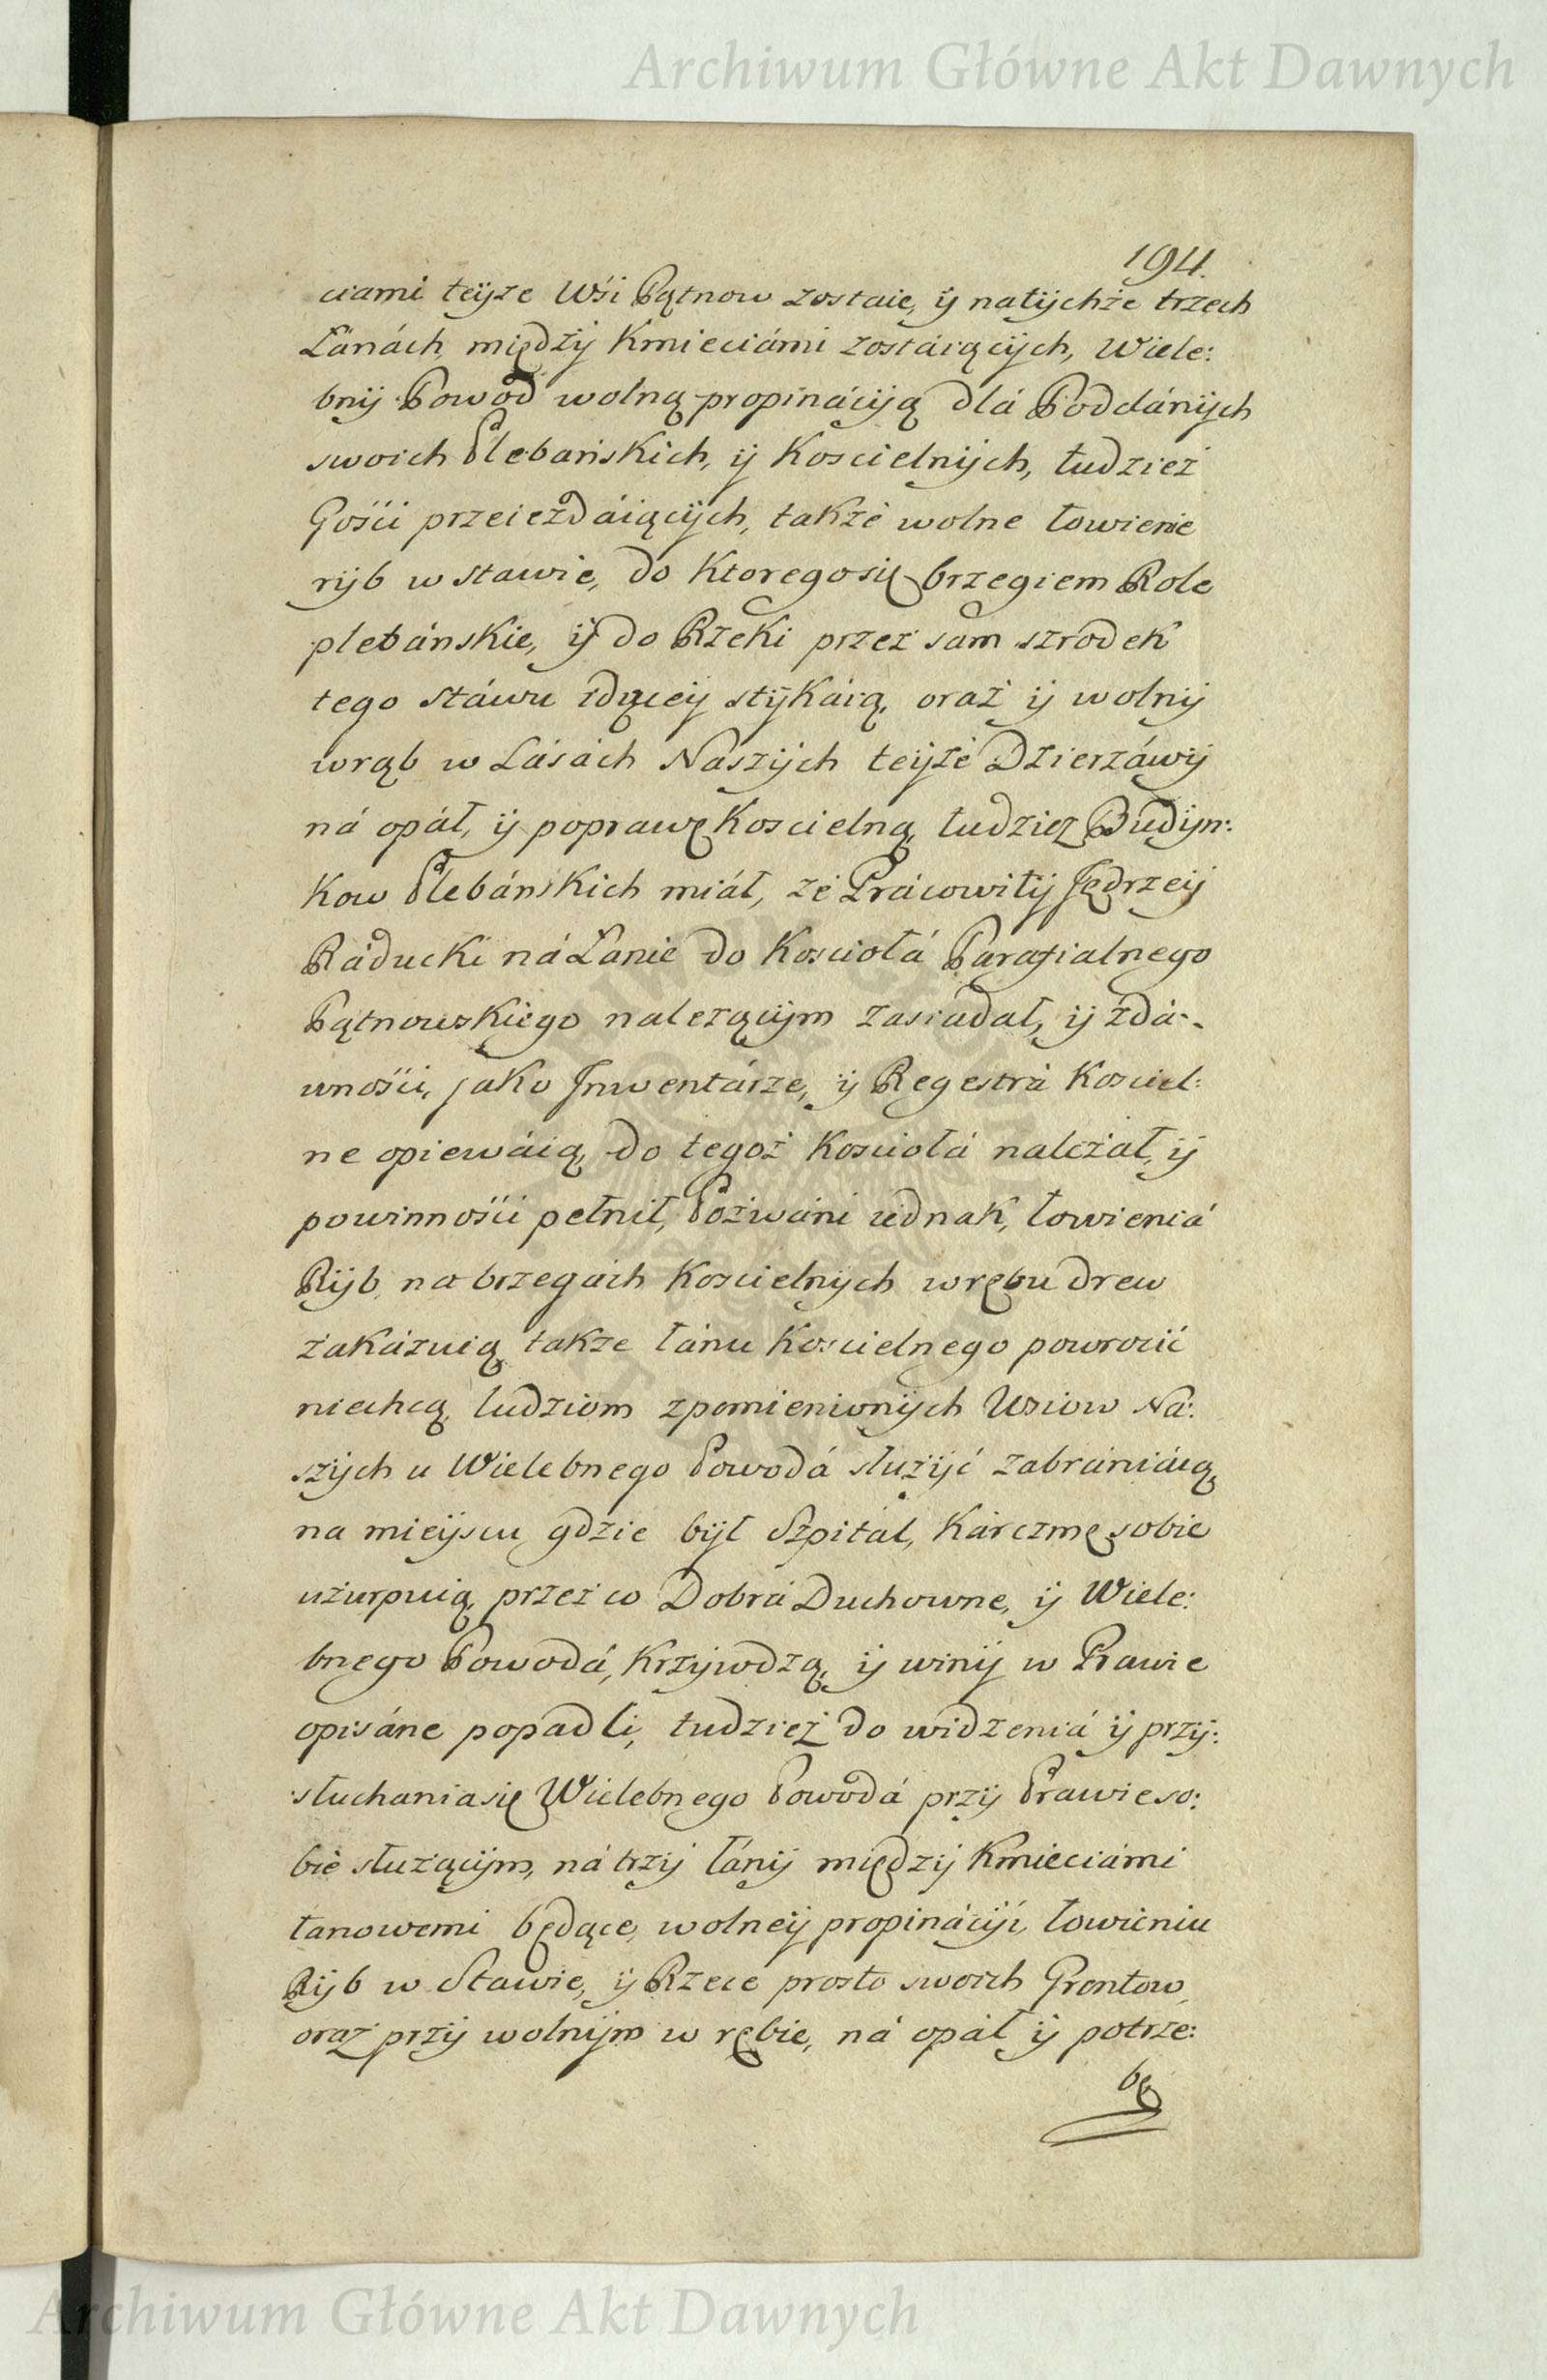 Archiwum Główne Akt Dawnych
194.
ciami teyże Wśi Pątnow zostaie, ÿ natÿchże trzech
Łanách międzÿ Kmieciámi zostáiącÿch, Wiele:
bnÿ Powod wolną propinácÿią dlá Poddánÿch
swoich Plebańskich, ÿ Koscielnÿch, tudzież
Gośći przeieżdáiącÿch, także wolne łowienie
rÿb w stawie, do Ktoregosię brzegiem Role
plebánskie, ÿ do Rzeki przez sam szrodek
tego stáwu idąceÿ stÿkáią, oraz ÿ wolnÿ
wrąb w Lásách Naszÿch teÿże Dzierzáwÿ
ná opáł, ÿ poprawę Koscielną, tudziez Budÿn:
Kow Plebánskich miáł, że Prácowitÿ Jędrzeÿ
Ráducki ná Łanie do Kosciołá Parafialnego
Pątnowskiego nalezącÿm zasiadał, ÿ zdá:
wnośći, jako Jnwentárze, ÿ Regestrá Kosciel:
ne opiewáią, do tegoż Kosciołá należał, ÿ
powinnośći pełnił, Pozwáni iednak, łowieniá
Rÿb na brzegách Koscielnÿch wrębu drew
zakázuią, takze łánu Koscielnego powrocić
niechcą, ludziom zpomienionÿch Wsiow Na:
szÿch u Wielebnego Powodá służÿć zabrániáią,
na mieÿscu gdzie bÿł Szpital, Kárczmę sobie
uzurpuią, przez co Dobrá Duchowne, ÿ Wiele:
bnego Powodá, Krzÿwdzą, ÿ winÿ w Prawie
opisáne popadli, tudzież do widzeniá ÿ przÿ:
słuchaniasię Wielebnego Powodá przÿ Prawie so:
bie służącÿm, ná trzÿ łánÿ międzÿ Kmieciámi
łanowemi będące, wolneÿ propinácÿi, łowieniu
Rÿb w Stawie, ÿ Rzece prosto swoich Grontow,
oraz przÿ wolnÿm w rębie, ná opáł ÿ potrze:
bę
Archiwum Główne Akt Dawnych